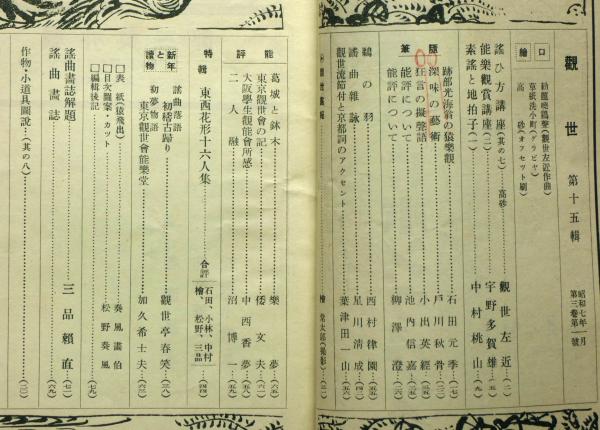 觀世 第十五輯 昭和七年一月 第三卷第一號
口繪
勅題曉鷄聲(觀世左近作曲)
草紙洗小町(グラビヤ)
高砂(オフセツト刷)
謠ひ方講座(其の七) 高砂 觀世左近
能樂觀賞講座(二) 宇野多賀雄
素謠と地拍子(一) 中村桃山
隨筆
跡部光海翁の猿樂觀 石田元季
深味の藝術 戸川秋骨
狂言の擬聲語 小出英經
能評について 池内信嘉
能評について 柳澤澄
鵜の羽 西村律園
謠曲雜詠 星川清成
觀世流節付と京都詞のアクセント 葉津田一山
能評
葛城と鉢木 樂夢
東京觀世會の記 倭文夫
大阪學生觀能會所感 中西香夢
二人融 沼博一
特輯 東西花形十六人集 合評 石田、小林、中村 檜、松野、三品
新年と讀物
謠曲落語 初稽古歸り 觀世亭春笑
初夢物語 東京觀世會能樂堂 加久希士夫
□表紙(猿飛出) 奏風畫伯
□目次圖案・カツト 松野奏風
□編輯後記
謠曲畫誌解題 三品頼直
謠曲畫誌
作物・小道具圖說(其の八)